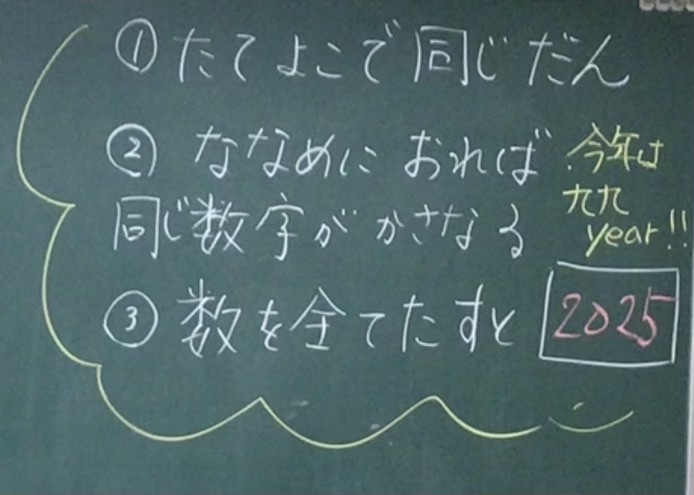 ① たてよこで同じだん
② ななめにおれば
同じ数字がかさなる
③ 数を全てたすと 2025
今年は
九九
year!!